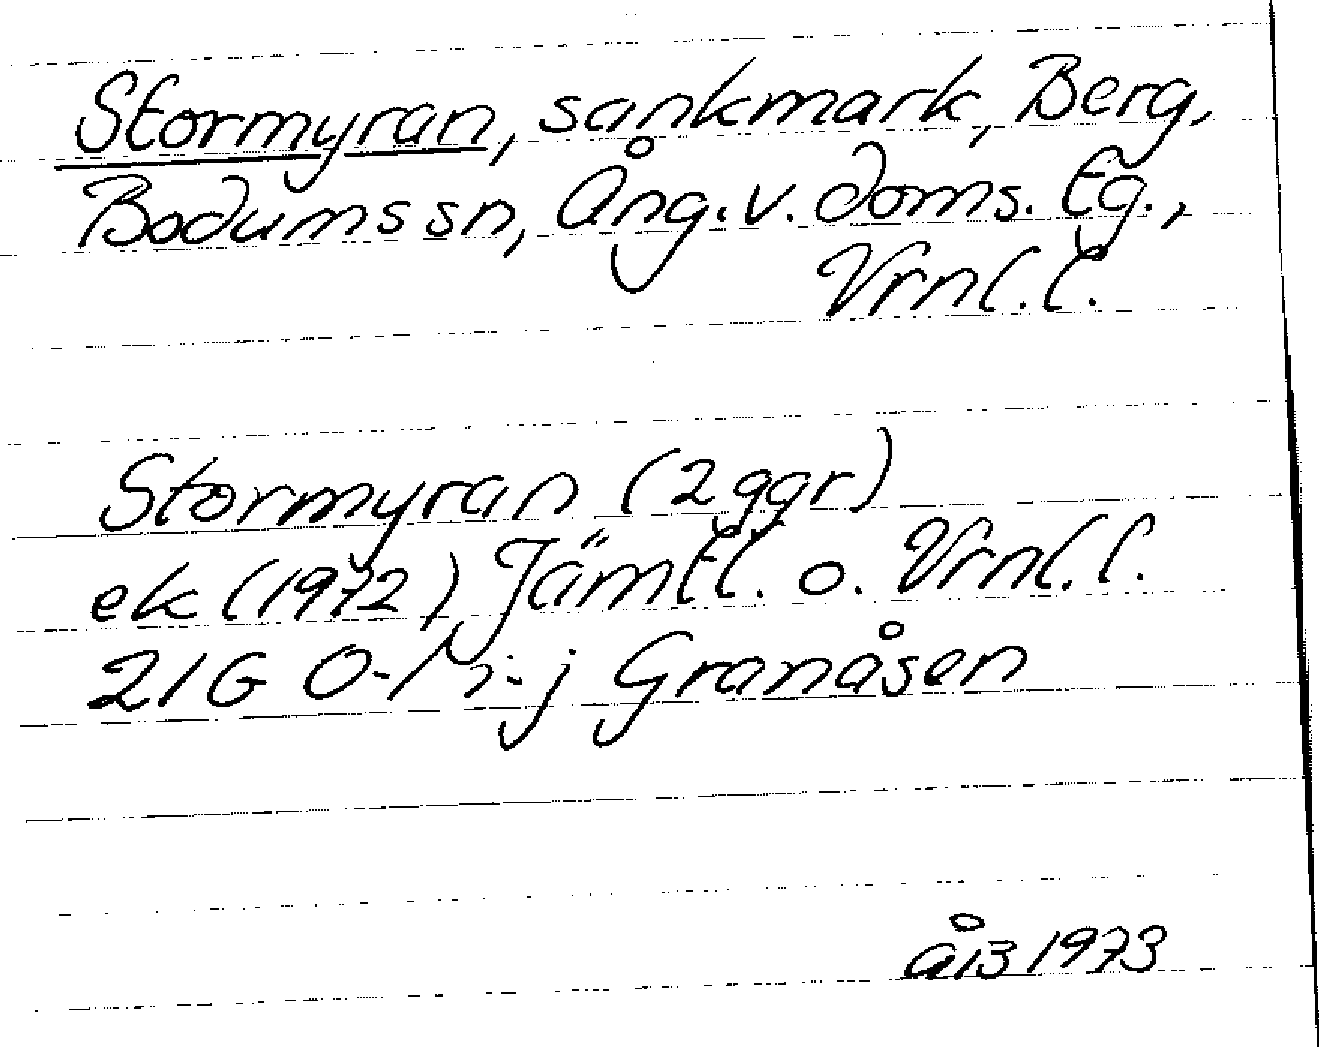 Stormyran, sankmark, Berg,
Bodums sn, Ång. v. doms. tg.,
Vrnl. l.
Stormyran (2 ggr)
ek (1972) Jämtl. o. Vrnl. l.
21G 0-1 i-j Granåsen
1973